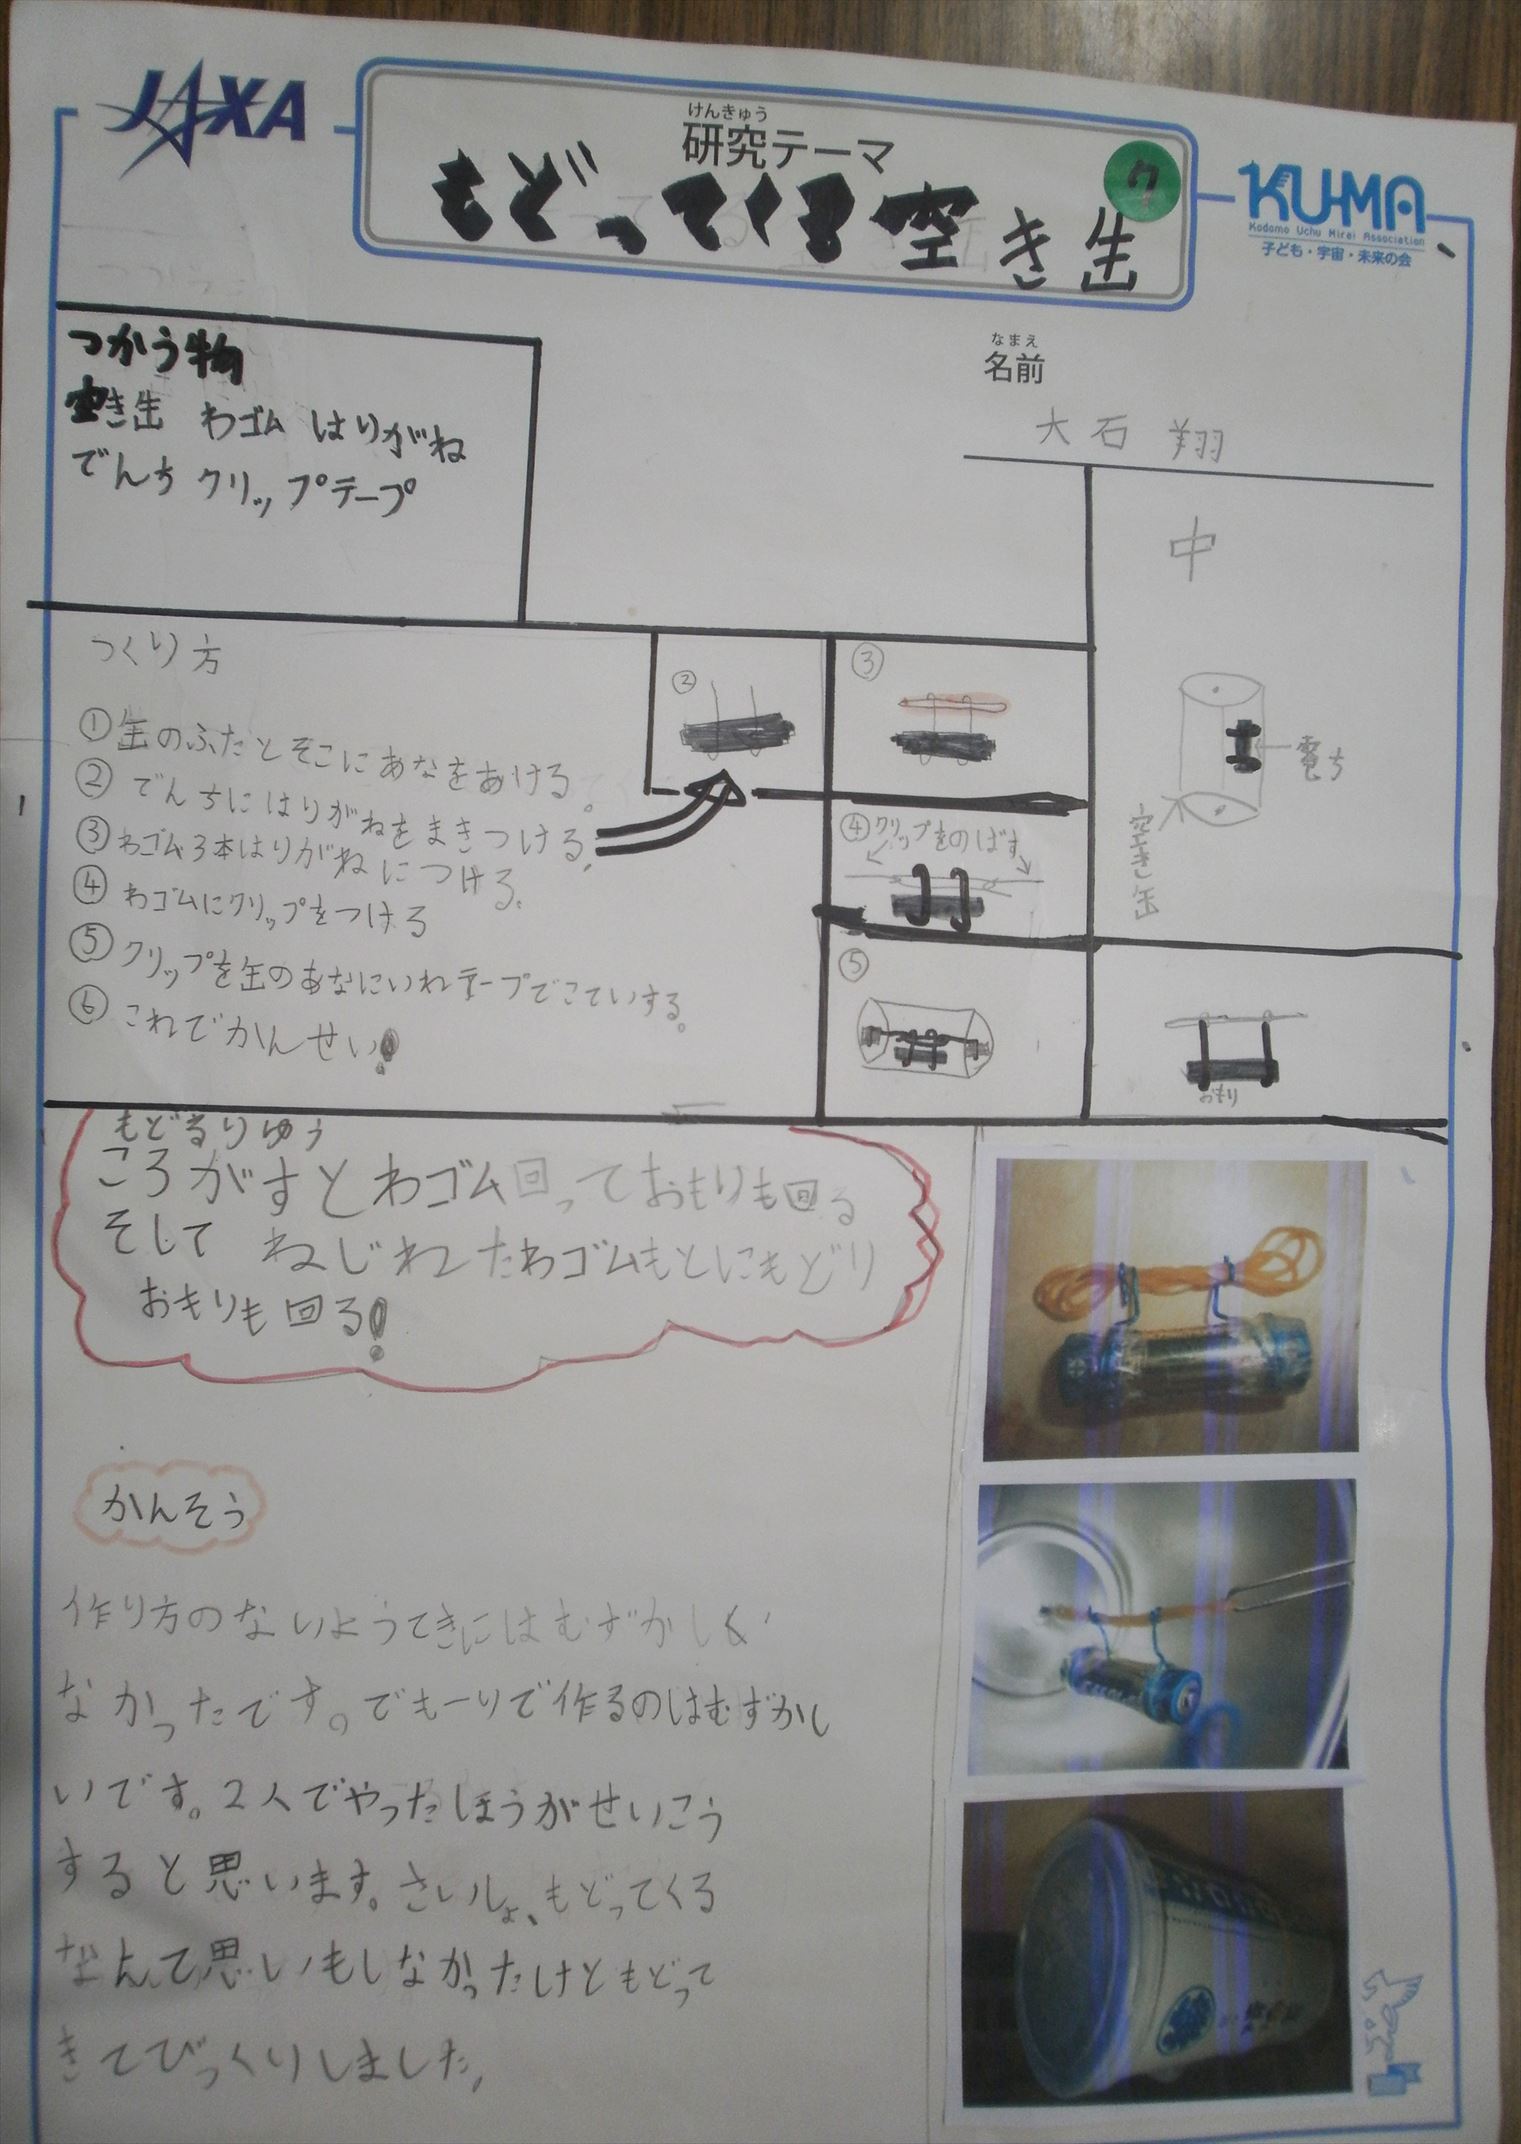 JAXA
けんきゅう
研究テーマ
7
もどってくる空き缶
KU-MA
Kodomo Uchu Mirai Association
子ども・宇宙・未来の会
なまえ
名前
大石 翔
つかう物
空き缶 わゴム はりがね
でんち クリップ テープ
中
電ち
空き缶
つくり方
①缶のふたとそこにあなをあける。
②でんちにはりがねをまきつける。
③わゴム3本はりがねにつける。
④わゴムにクリップをつける
⑤クリップを缶のあなにいれテープでこていする。
⑥これでかんせい!
②
③
④クリップをのばす
⑤
おもり
もどるりゆう
ころがすとわゴム回っておもりも回る
そして ねじれたわゴムもとにもどり
おもりも回る!
かんそう
作り方のないようてきにはむずかしく
なかったです。でも一りで作るのはむずかし
いです。2人でやったほうがせいこう
すると思います。さいしょ、もどってくる
なんて思いもしなかったけともどって
きてびっくりしました。